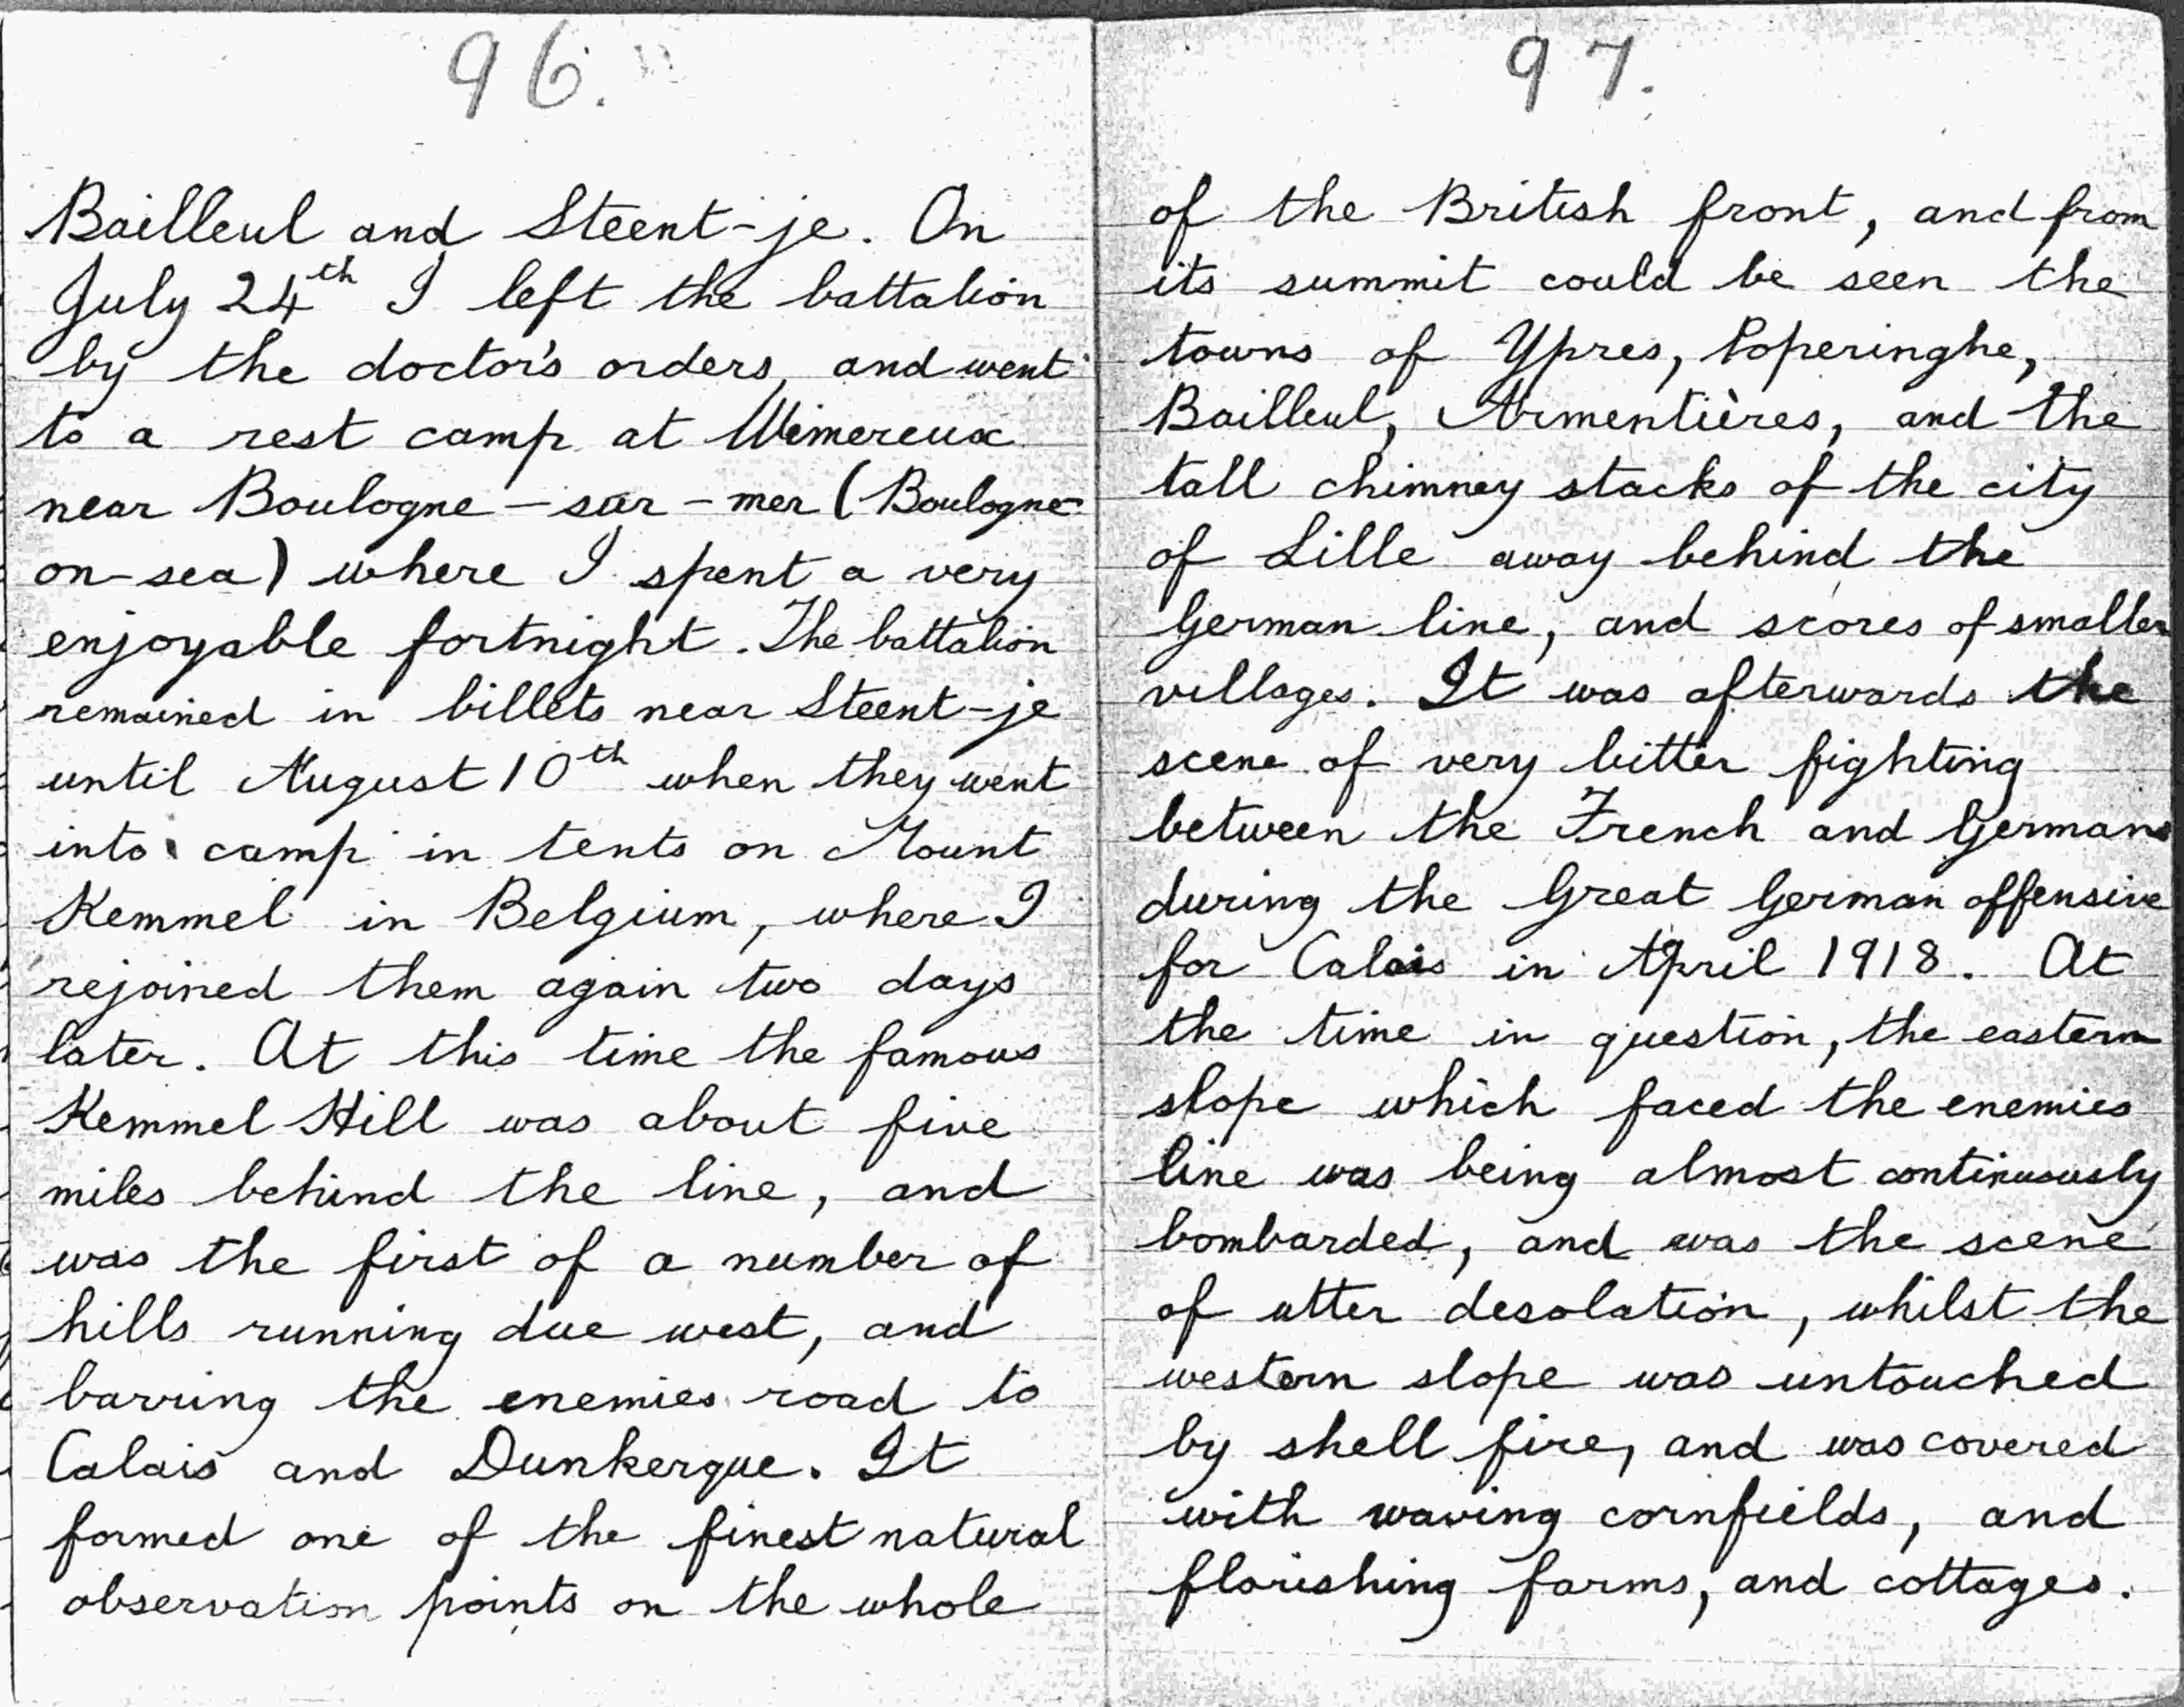 96.
Bailleul and Steent-je. On
July 24th I left the battalion
by the doctor's orders, and went
to a rest camp at Wimereux
near Boulogne-sur-mer (Boulogne-
on-sea) where I spent a very
enjoyable fortnight. The battalion
remained in billets near Steent-je
until August 10th when they went
into camp in tents on Mount
Kemmel in Belgium, where I
rejoined them again two days
later. At this time the famous
Kemmel Hill was about five
miles behind the line, and
was the first of a number of
hills running due west, and
barring the enemies road to
Calais and Dunkerque. It
formed one of the finest natural
observation points on the whole
97.
of the British front, and from
its summit could be seen the
towns of Ypres, Poperinghe,
Bailleul, Armentières, and the
tall chimney stacks of the city
of Lille away behind the
German line, and scores of smaller
villages. It was afterwards the
scene of very bitter fighting
between the French and Germans
during the Great German offensive
for Calais in April 1918. At
the time in question, the eastern
slope which faced the enemies
line was being almost continuously
bombarded, and was the scene
of utter desolation, whilst the
western slope was untouched
by shell fire, and was covered
with waving cornfields, and
florishing farms, and cottages.